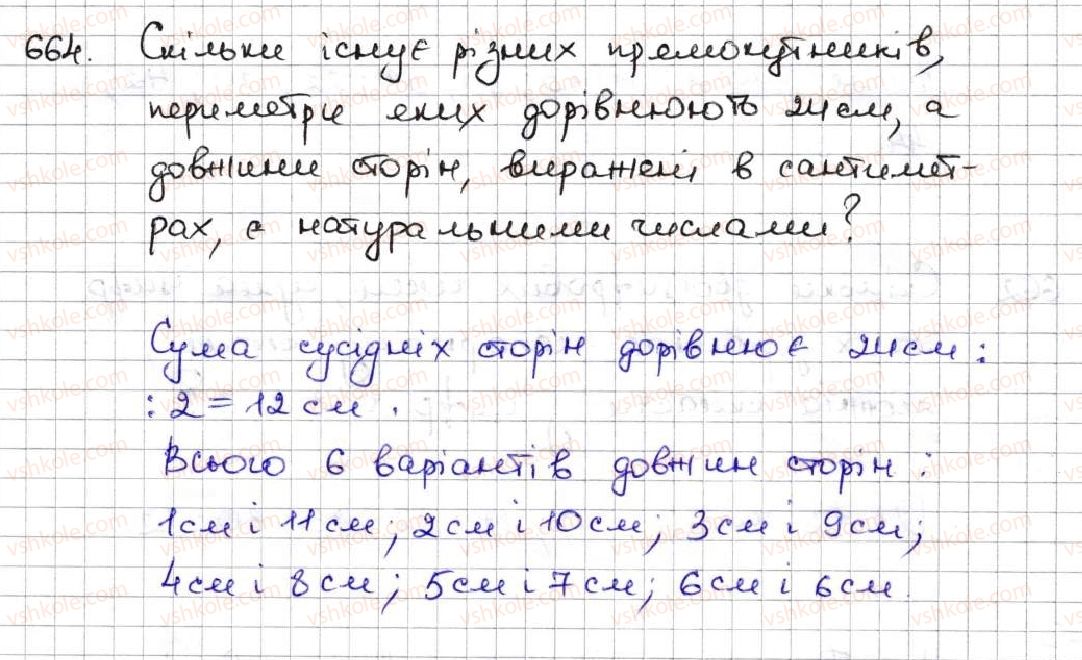 664. Скільки існує різних прямокутників,
периметри яких дорівнюють 24 см, а
довжини сторін, виражені в сантимет-
рах, є натуральними числами?
Сума сусідніх сторін дорівнює 24 см :
: 2 = 12 см.
Всього 6 варіантів довжин сторін :
1 см і 11 см; 2 см і 10 см; 3 см і 9 см;
4 см і 8 см; 5 см і 7 см; 6 см і 6 см.